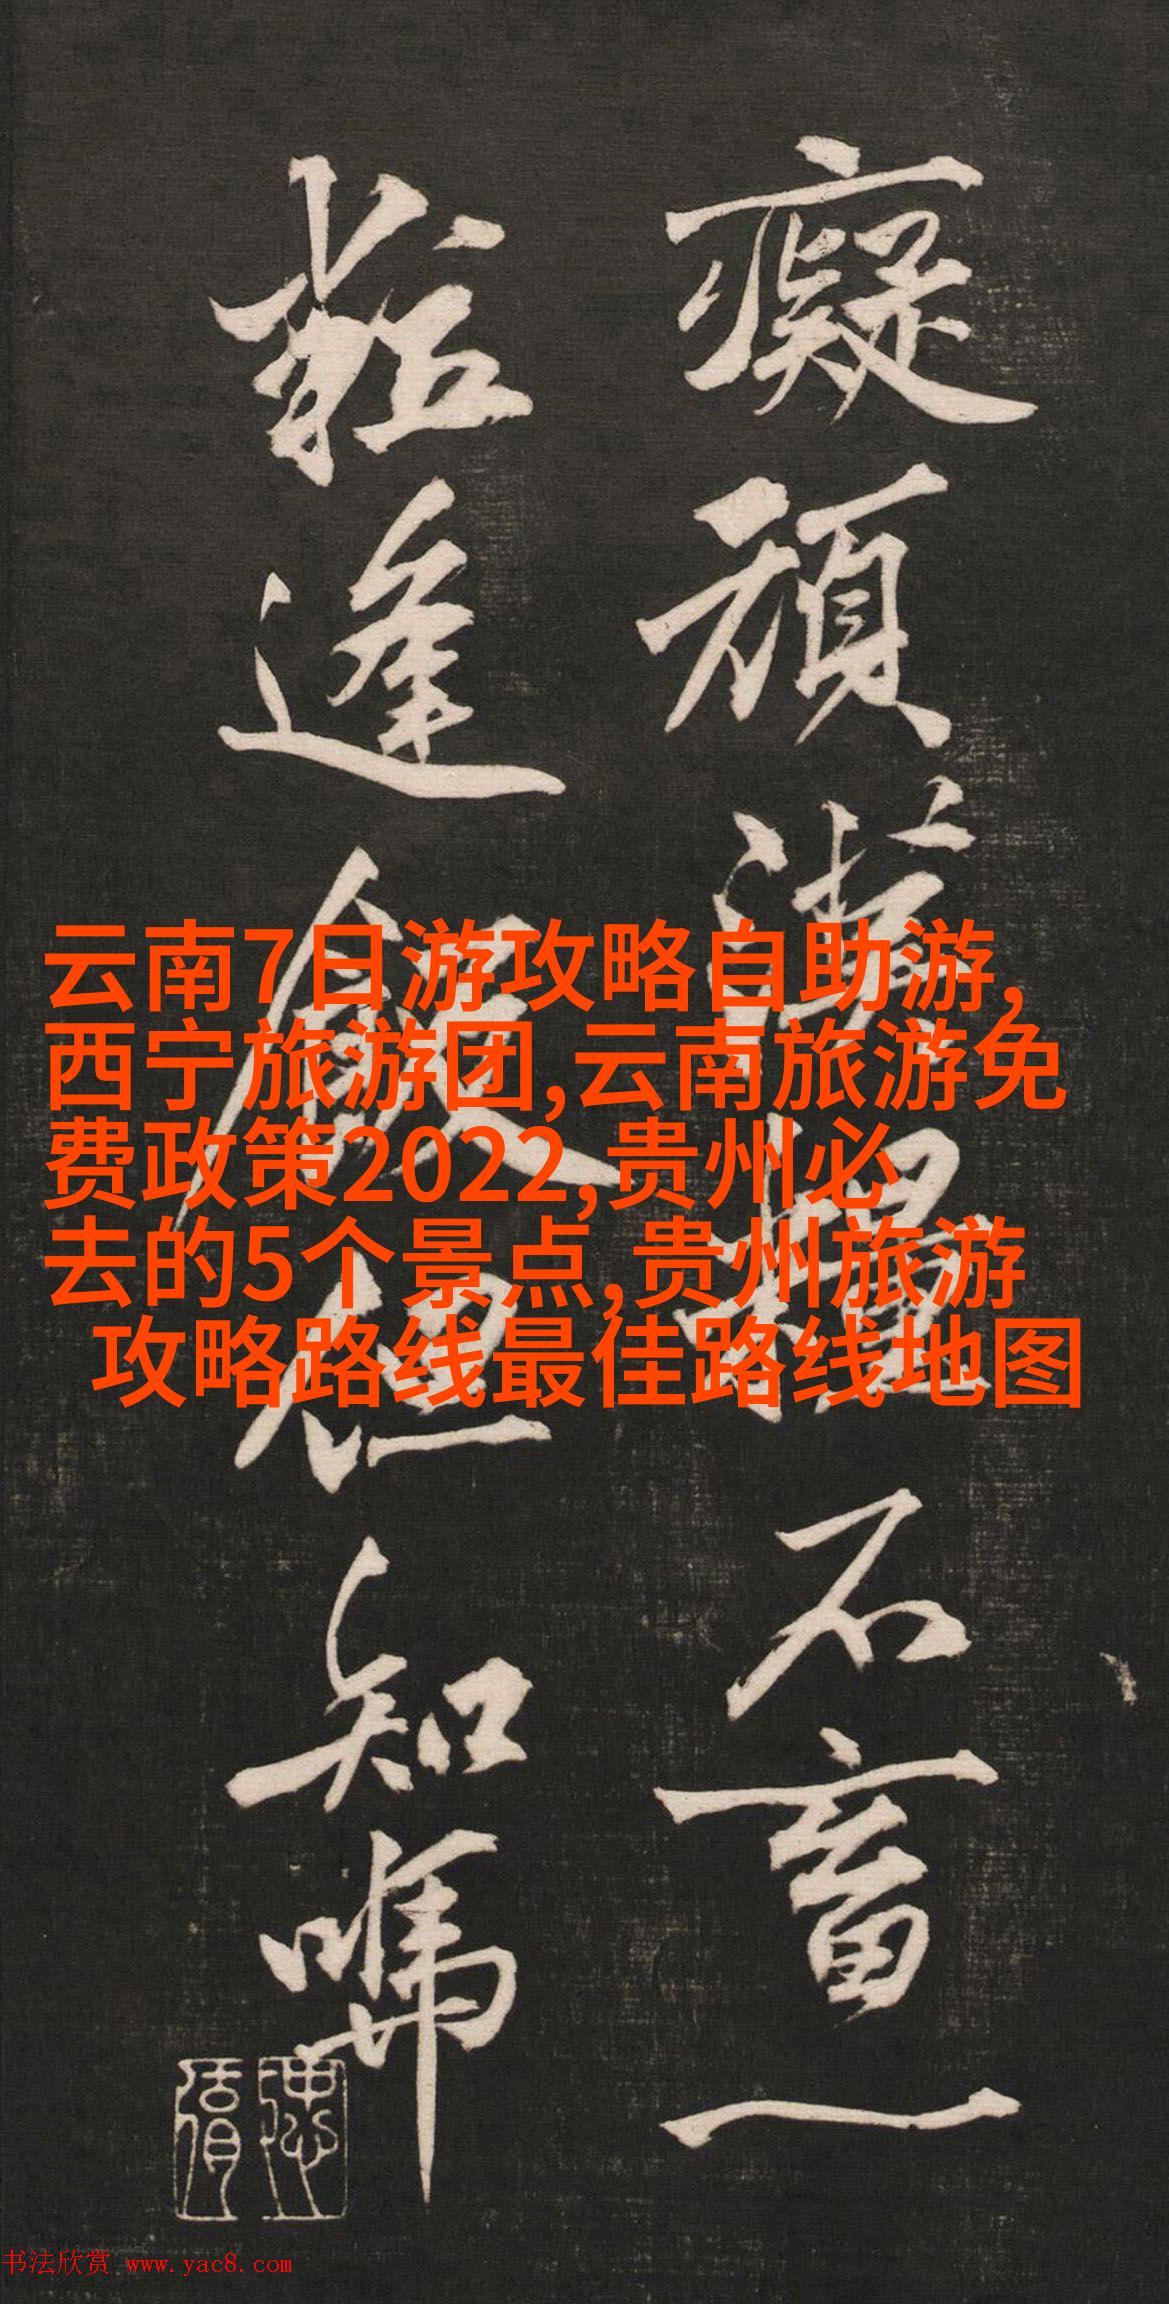 癡頑石畜一
逢飯但知
云南7日游攻略自助游,
西宁旅游团,云南旅游免
费政策2022,贵州必
去的5个景点,贵州旅游
攻略路线最佳路线地图
书法欣赏 www.yac8.com